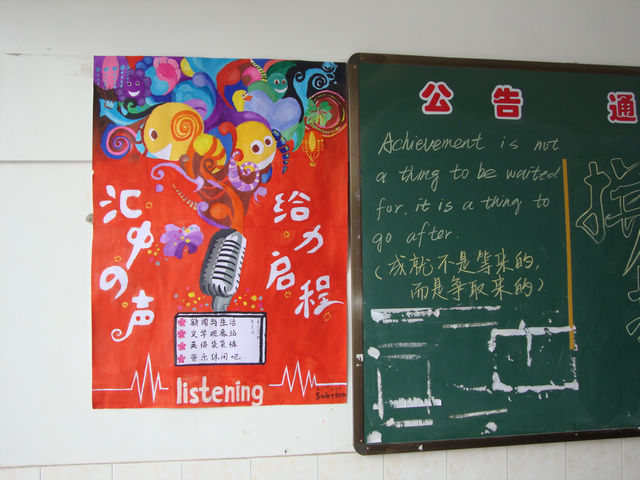 汇中の声
给力启程
新闻与生活
文学观察站
英语袋袋裤
音乐休闲吧
listening
Sabrina
公告 通
Achievement is not
a thing to be waited
for, it is a thing to
go after.
(成就不是等来的,
而是争取来的)